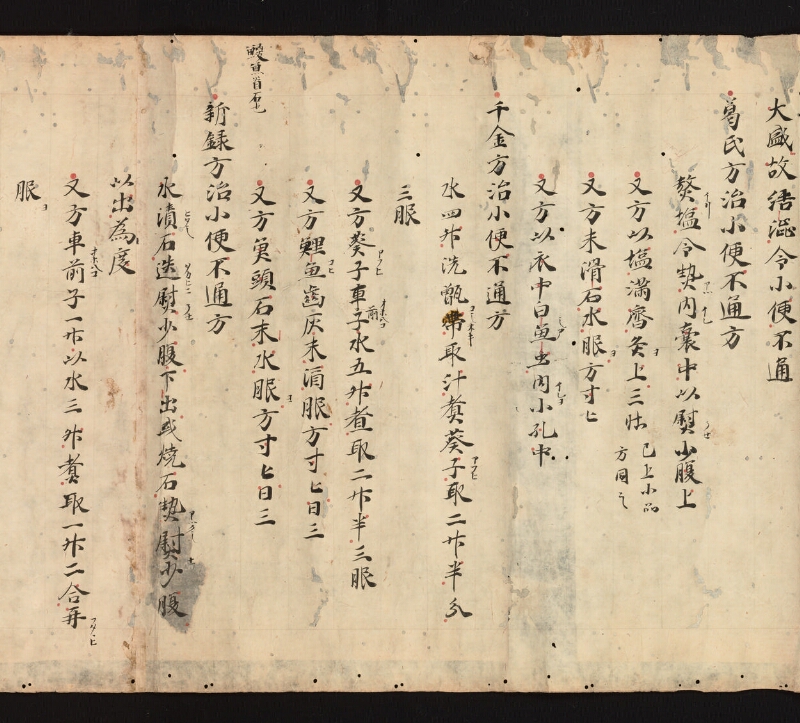 大盛故結澁令小便不通
葛氏方治小便不通方
熬塩令熱内囊中以熨少腹上
又方以塩滿齊灸上三壮 已上小品方同之
又方末滑石水服方寸匕
又方以衣中白魚虫内小孔中
千金方治小便不通方
水四升洗甑帶取汁煑葵子取二升半分
三服
又方葵子車前子水五升煑取二升半三服
又方鯉魚齒灰末酒服方寸匕日三
又方魚頭石末水服方寸匕日三
新録方治小便不通方
水漬石迭熨少腹下出或燒石熱熨少腹
以出為度
又方車前子一升以水三升煑取一升二合再
服